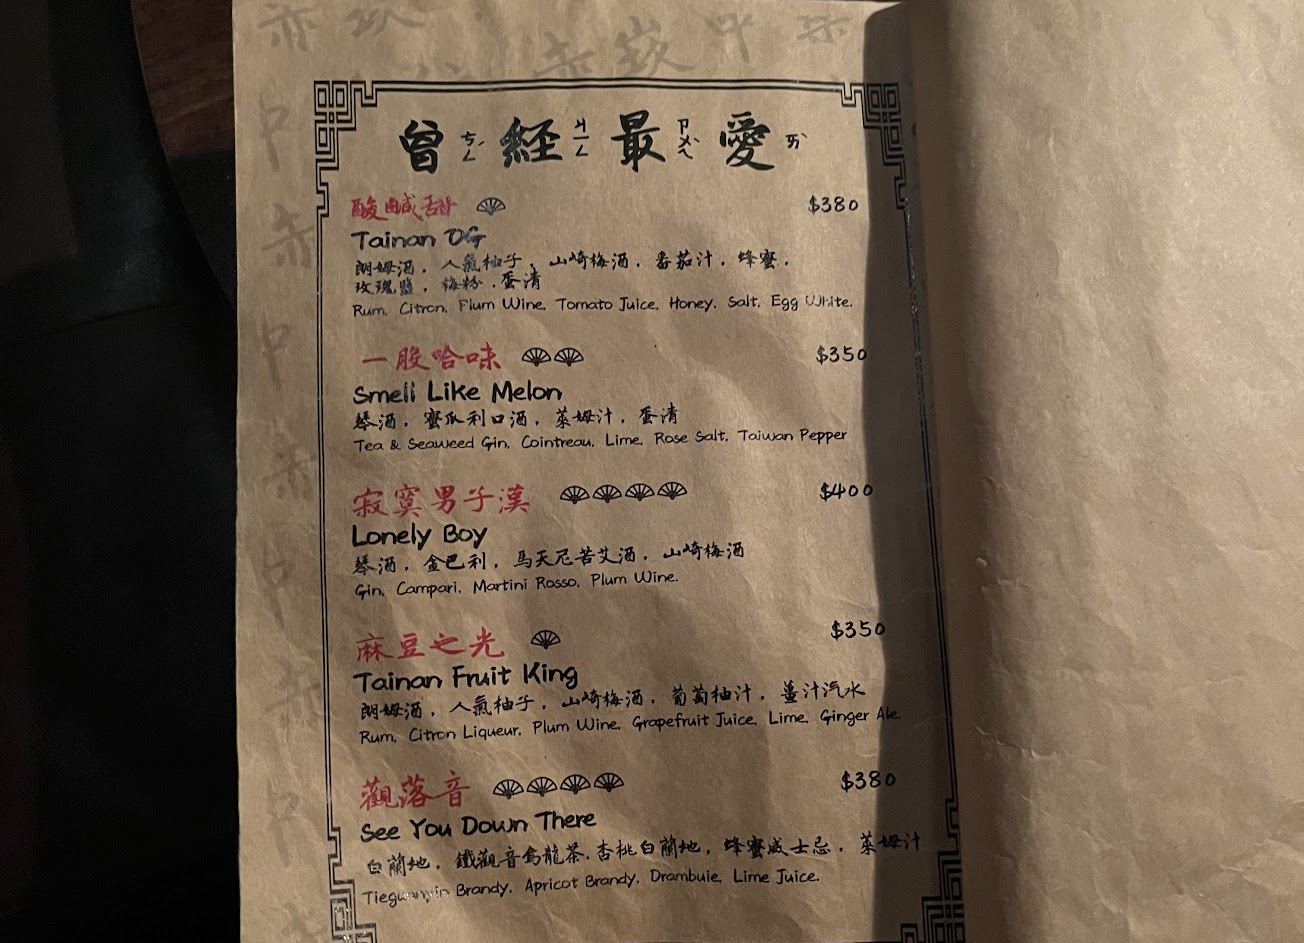 曾ㄘㄥˊ 經ㄐㄧㄥ 最ㄗㄨㄟˋ 愛ㄞˋ
酸鹹甜 $380
Tainan OG
朗姆酒，人氣柚子，山崎梅酒，番茄汁，蜂蜜，
玫瑰鹽，梅粉，蛋清
Rum, Citron, Plum Wine, Tomato Juice, Honey, Salt, Egg White.
一股哈味 $350
Smell Like Melon
琴酒，蜜瓜利口酒，萊姆汁，蛋清
Tea & Seaweed Gin, Cointreau, Lime, Rose Salt, Taiwan Pepper
寂寞男子漢 $400
Lonely Boy
琴酒，金巴利，馬天尼苦艾酒，山崎梅酒
Gin, Campari, Martini Rosso, Plum Wine.
麻豆之光 $350
Tainan Fruit King
朗姆酒，人氣柚子，山崎梅酒，葡萄柚汁，薑汁汽水
Rum, Citron Liqueur, Plum Wine, Grapefruit Juice, Lime, Ginger Ale.
觀落音 $380
See You Down There
白蘭地，鐵觀音烏龍茶，杏桃白蘭地，蜂蜜威士忌，萊姆汁
Tieguanyin Brandy, Apricot Brandy, Drambuie, Lime Juice.